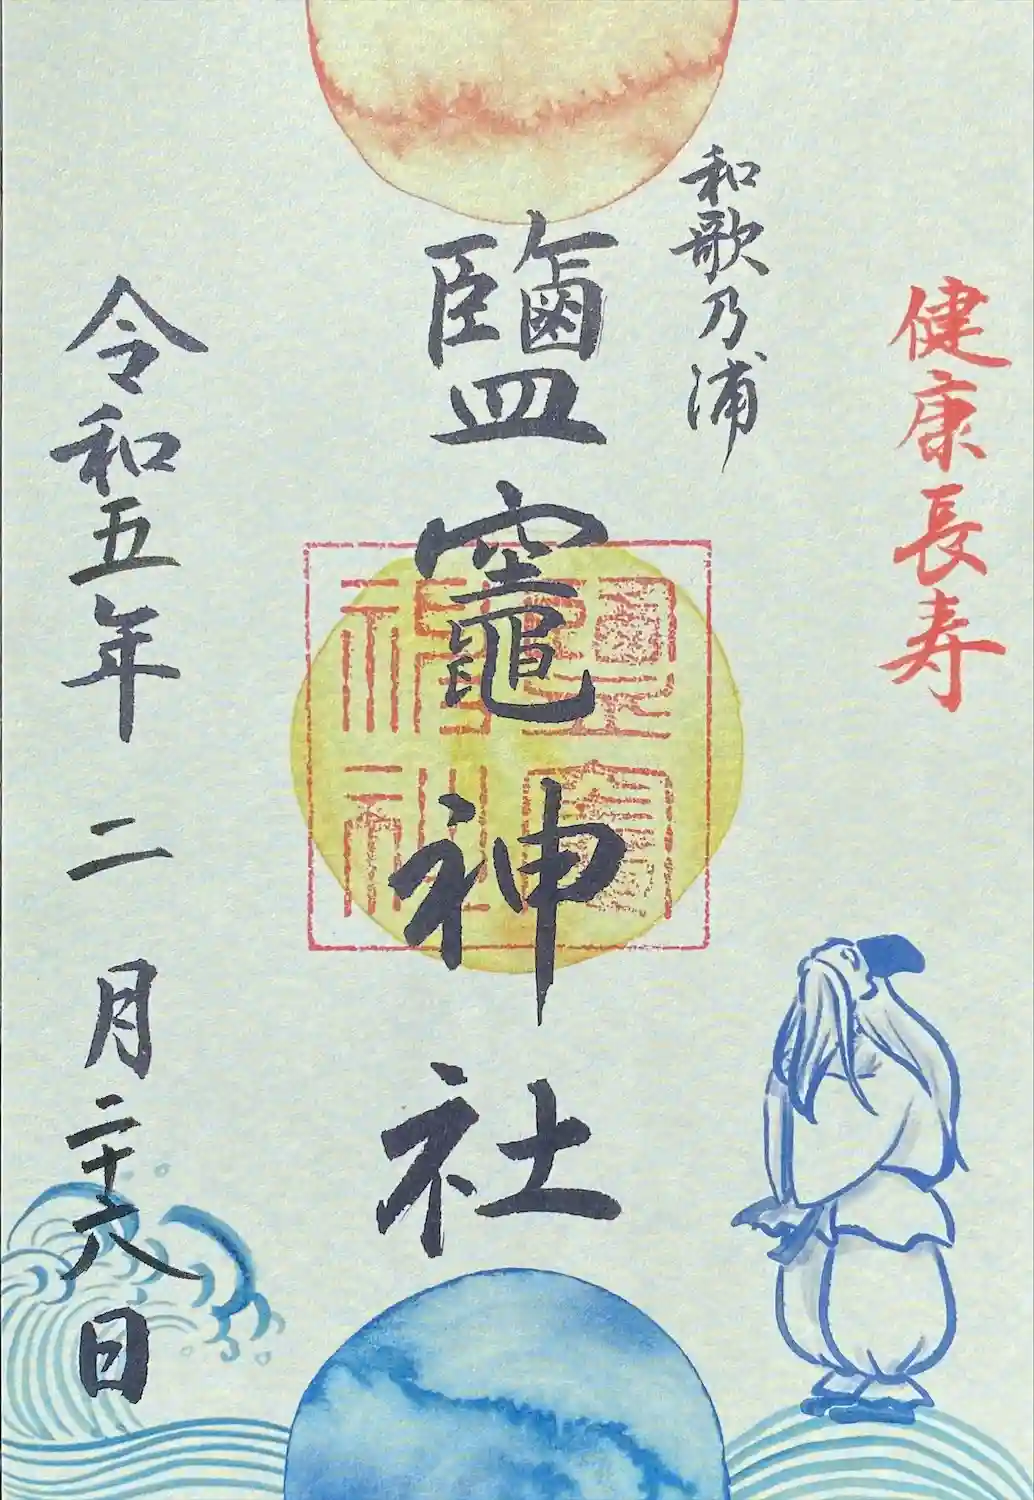 健康長寿
和歌乃浦
鹽竈神社
令和五年二月二十六日